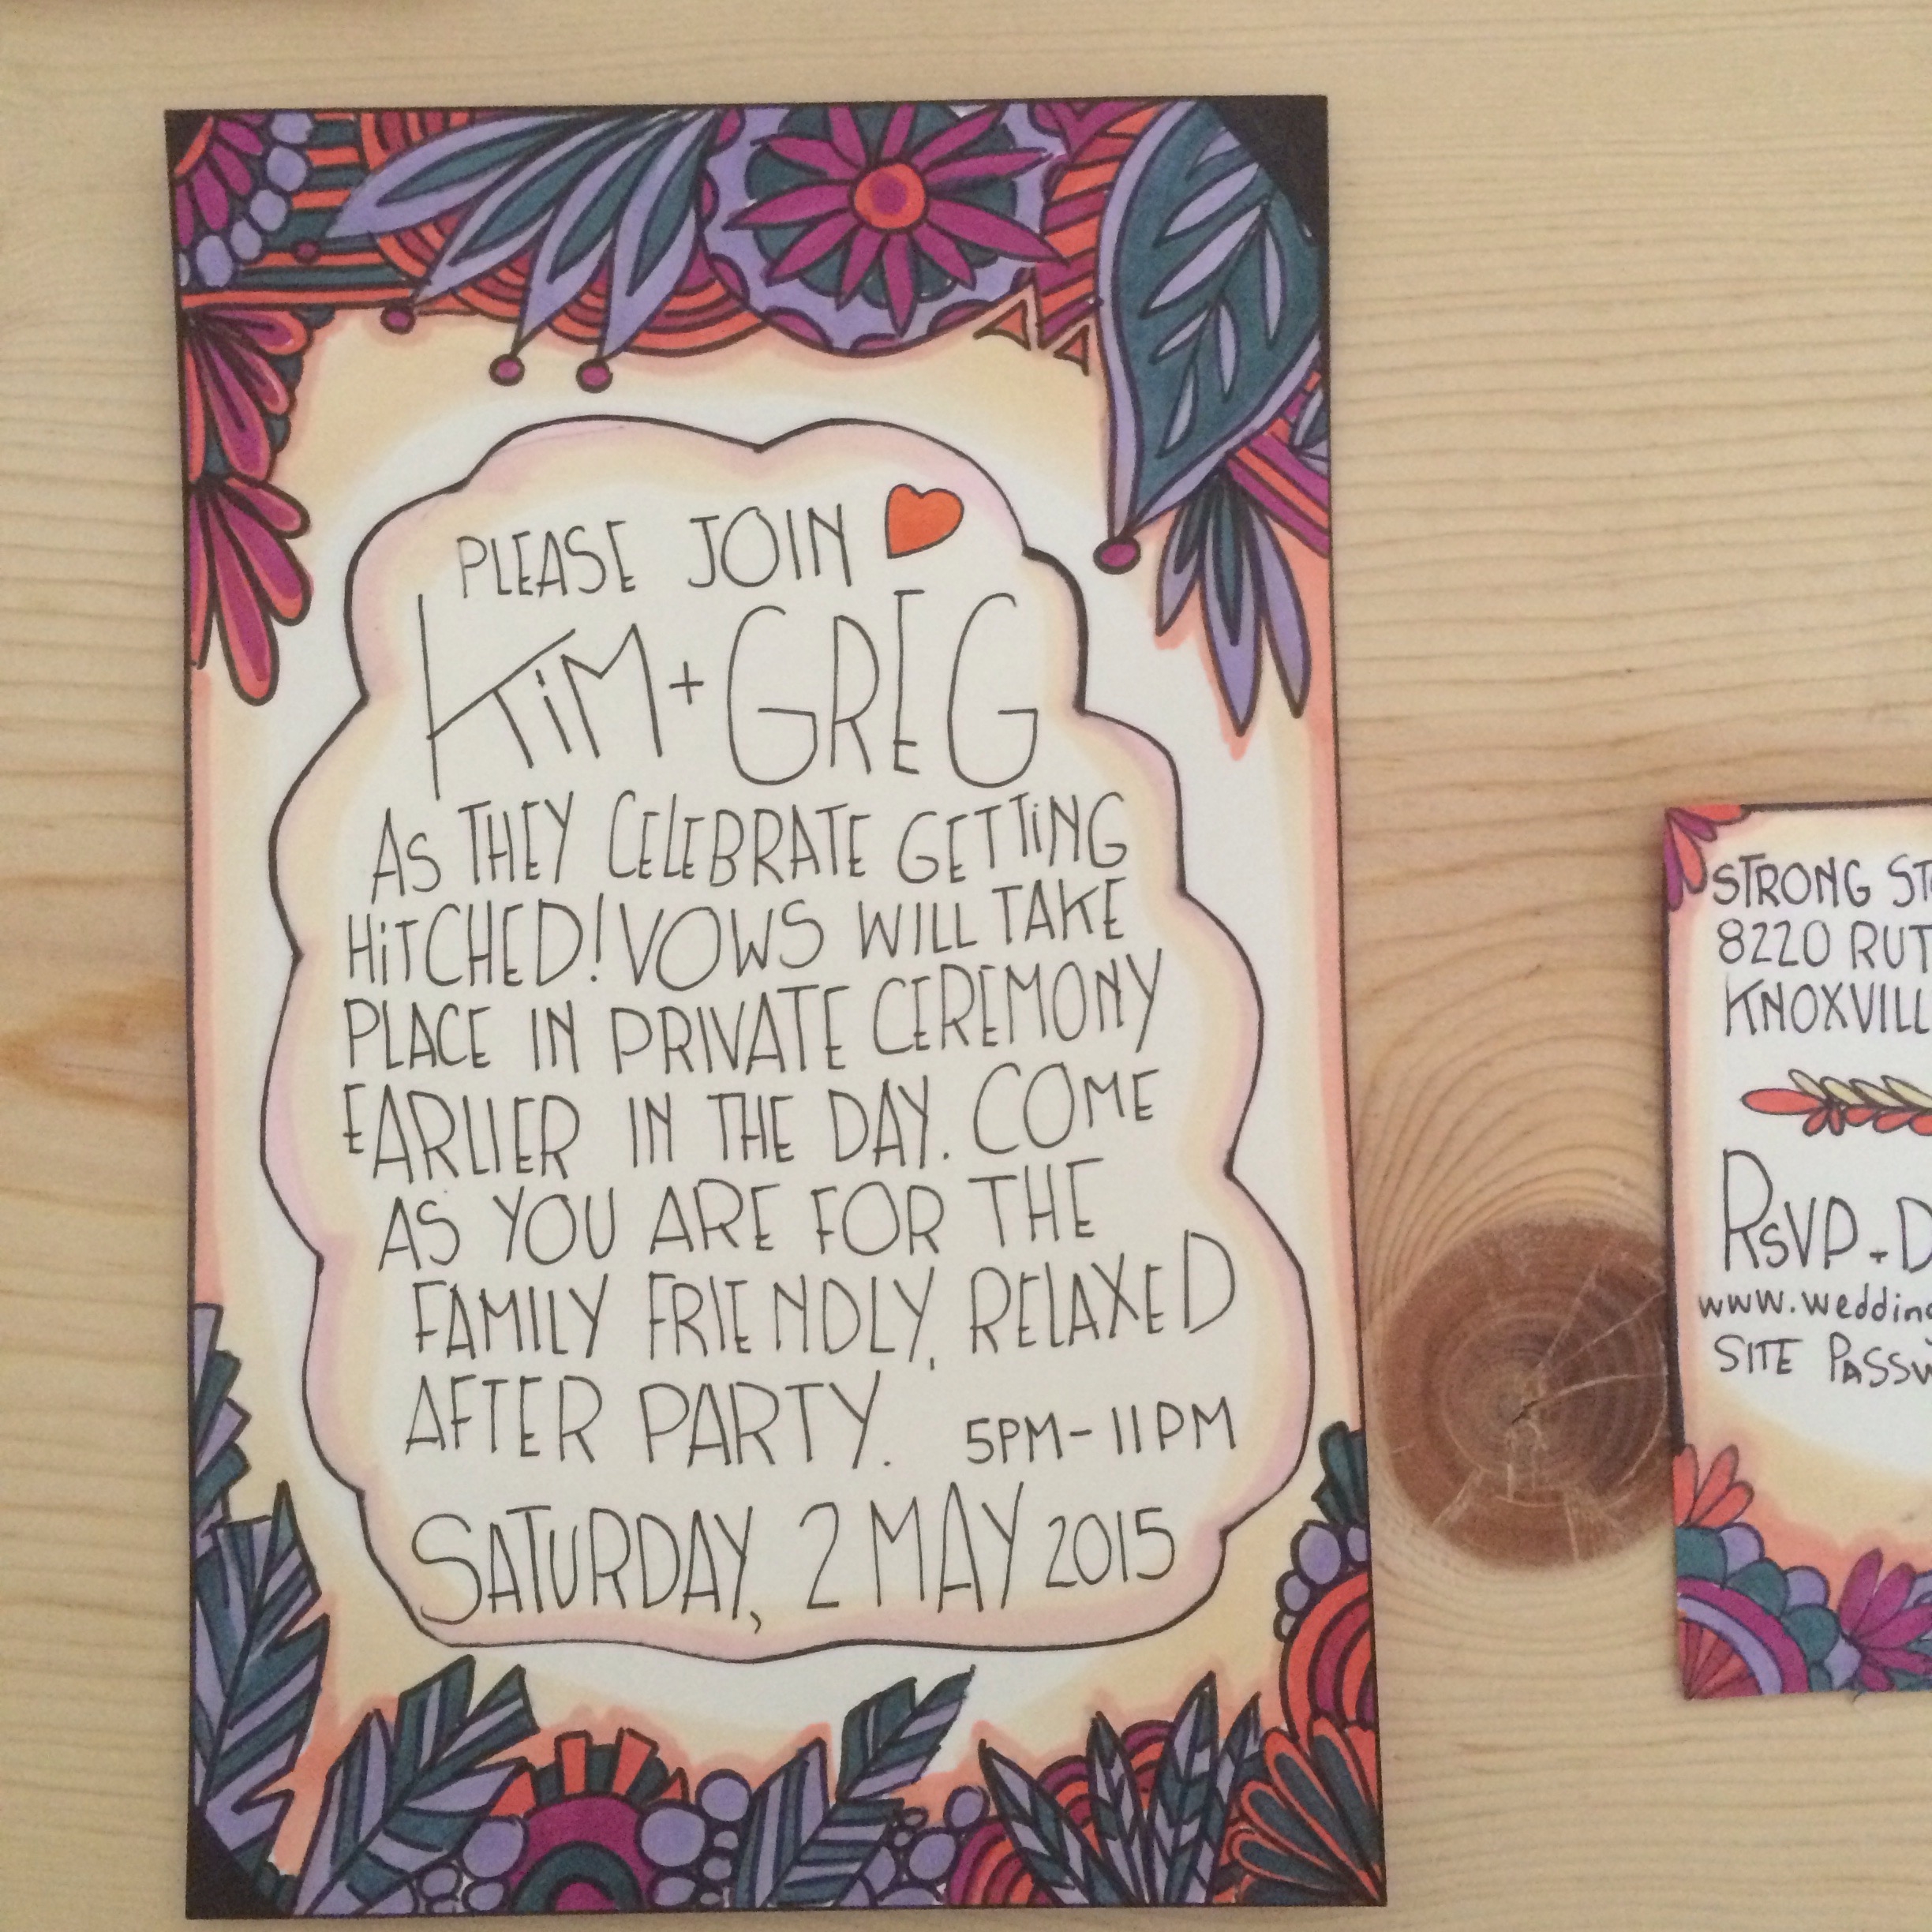 PLEASE JOIN
KiM + GREG
AS THEY CELEBRATE GETTiNG
HiTCHED! VOWS WILL TAKE
PLACE IN PRIVATE CEREMONY
EARLIER IN THE DAY. COME
AS YOU ARE FOR THE
FAMILY FRIENDLY, RELAXED
AFTER PARTY. 5PM-11PM
SATURDAY, 2 MAY 2015
STRONG
8220
RSVP +
SITE